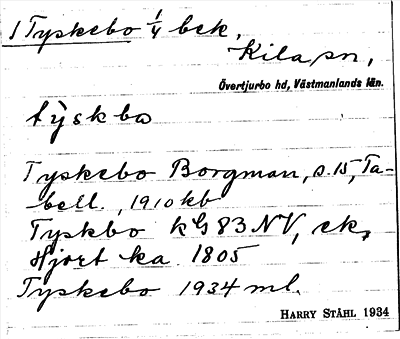 1 Tyskebo 1/4 bek,
Kila sn,
Övertjurbo hd, Västmanlands län.
týskbo
Tyskebo Borgman, s. 15, Ta-
bell., 1910 kb
Tyskbo kG 83 NV, ek,
Hjort ka 1805
Tyskebo 1934 ml.
HARRY STÅHL 1934